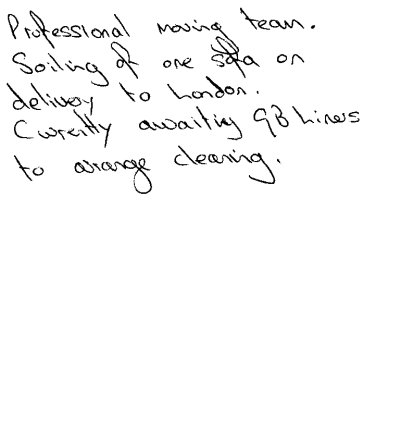 Professional moving team.
Soiling of one sofa on
delivery to London.
Currently awaiting GB Liners
to arrange cleaning.